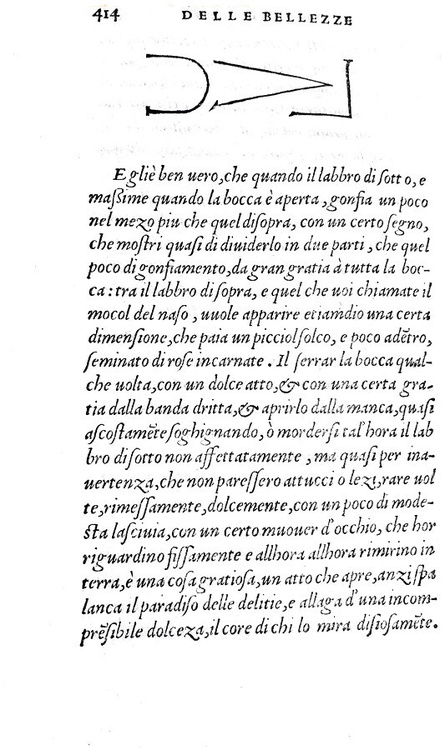 414 DELLE BELLEZZE
Egliè ben uero, che quando il labbro di sotto, e
maßime quando la bocca è aperta, gonfia un poco
nel mezo piu che quel disopra, con un certo segno,
che mostri quasi di diuiderlo in due parti, che quel
poco di gonfiamento, da gran gratia à tutta la boc-
ca: tra il labbro di sopra, e quel che uoi chiamate il
mocol del naso, uuole apparire etiamdio una certa
dimensione, che paia un picciol solco, e poco adẽtro,
seminato di rose incarnate. Il serrar la bocca qual-
che uolta, con un dolce atto, & con una certa gra-
tia dalla banda dritta, & aprirlo dalla manca, quasi
ascostamẽte soghignando, ò mordersi tal'hora il lab
bro di sotto non affettatamente, ma quasi per ina-
uertenza, che non paressero attucci o lezi, rare uol
te, rimessamente, dolcemente, con un poco di mode-
sta lasciuia, con un certo muouer d'occhio, che hor
riguardino fissamente e allhora allhora rimirino in
terra, è una cosa gratiosa, un atto che apre, anzi spa
lanca il paradiso delle delitie, e allaga d'una incom-
prẽsibile dolceza, il core di chi lo mira disiosamẽte.